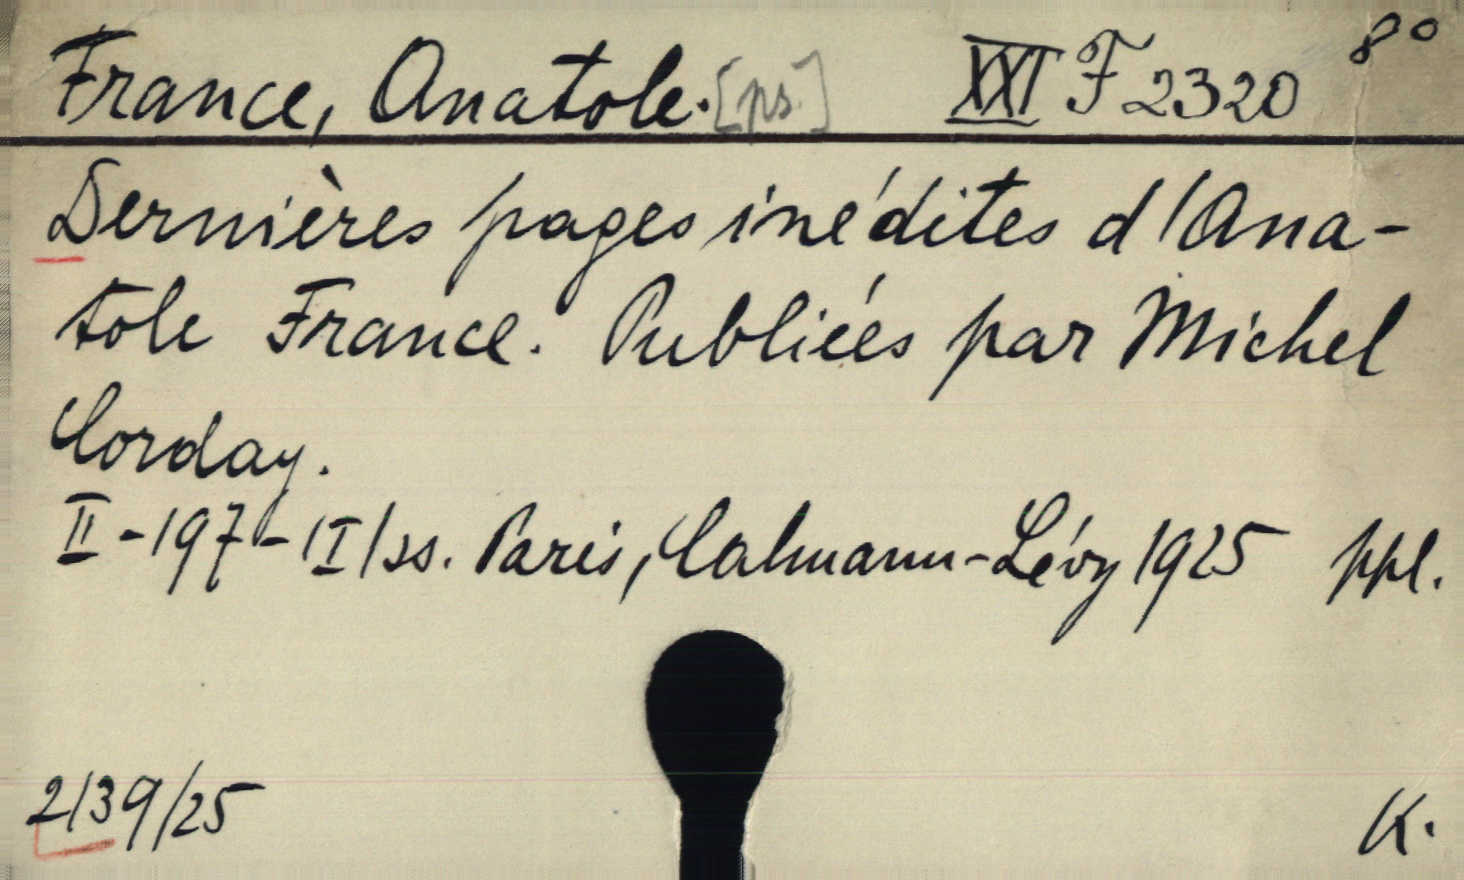 France, Anatole. [ps.] XXI F 2320 8°
Dernières pages inédites d'Ana-
tole France. Publiées par Michel
Corday.
II-197-(I) ss. Paris, Calmann-Lévy 1925 ppl.
2139/25 K.